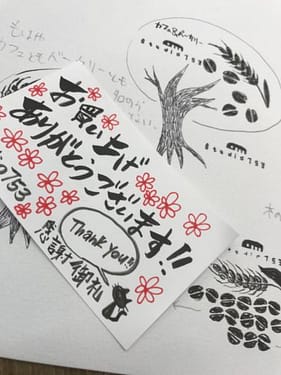 もはや
カフェでもベーカリーでも
カフェ&ベーカリー
studio753
studio753
お買い上げ
ありがとうございます!!
Thank you!!
感謝御礼
753
studio753
木の